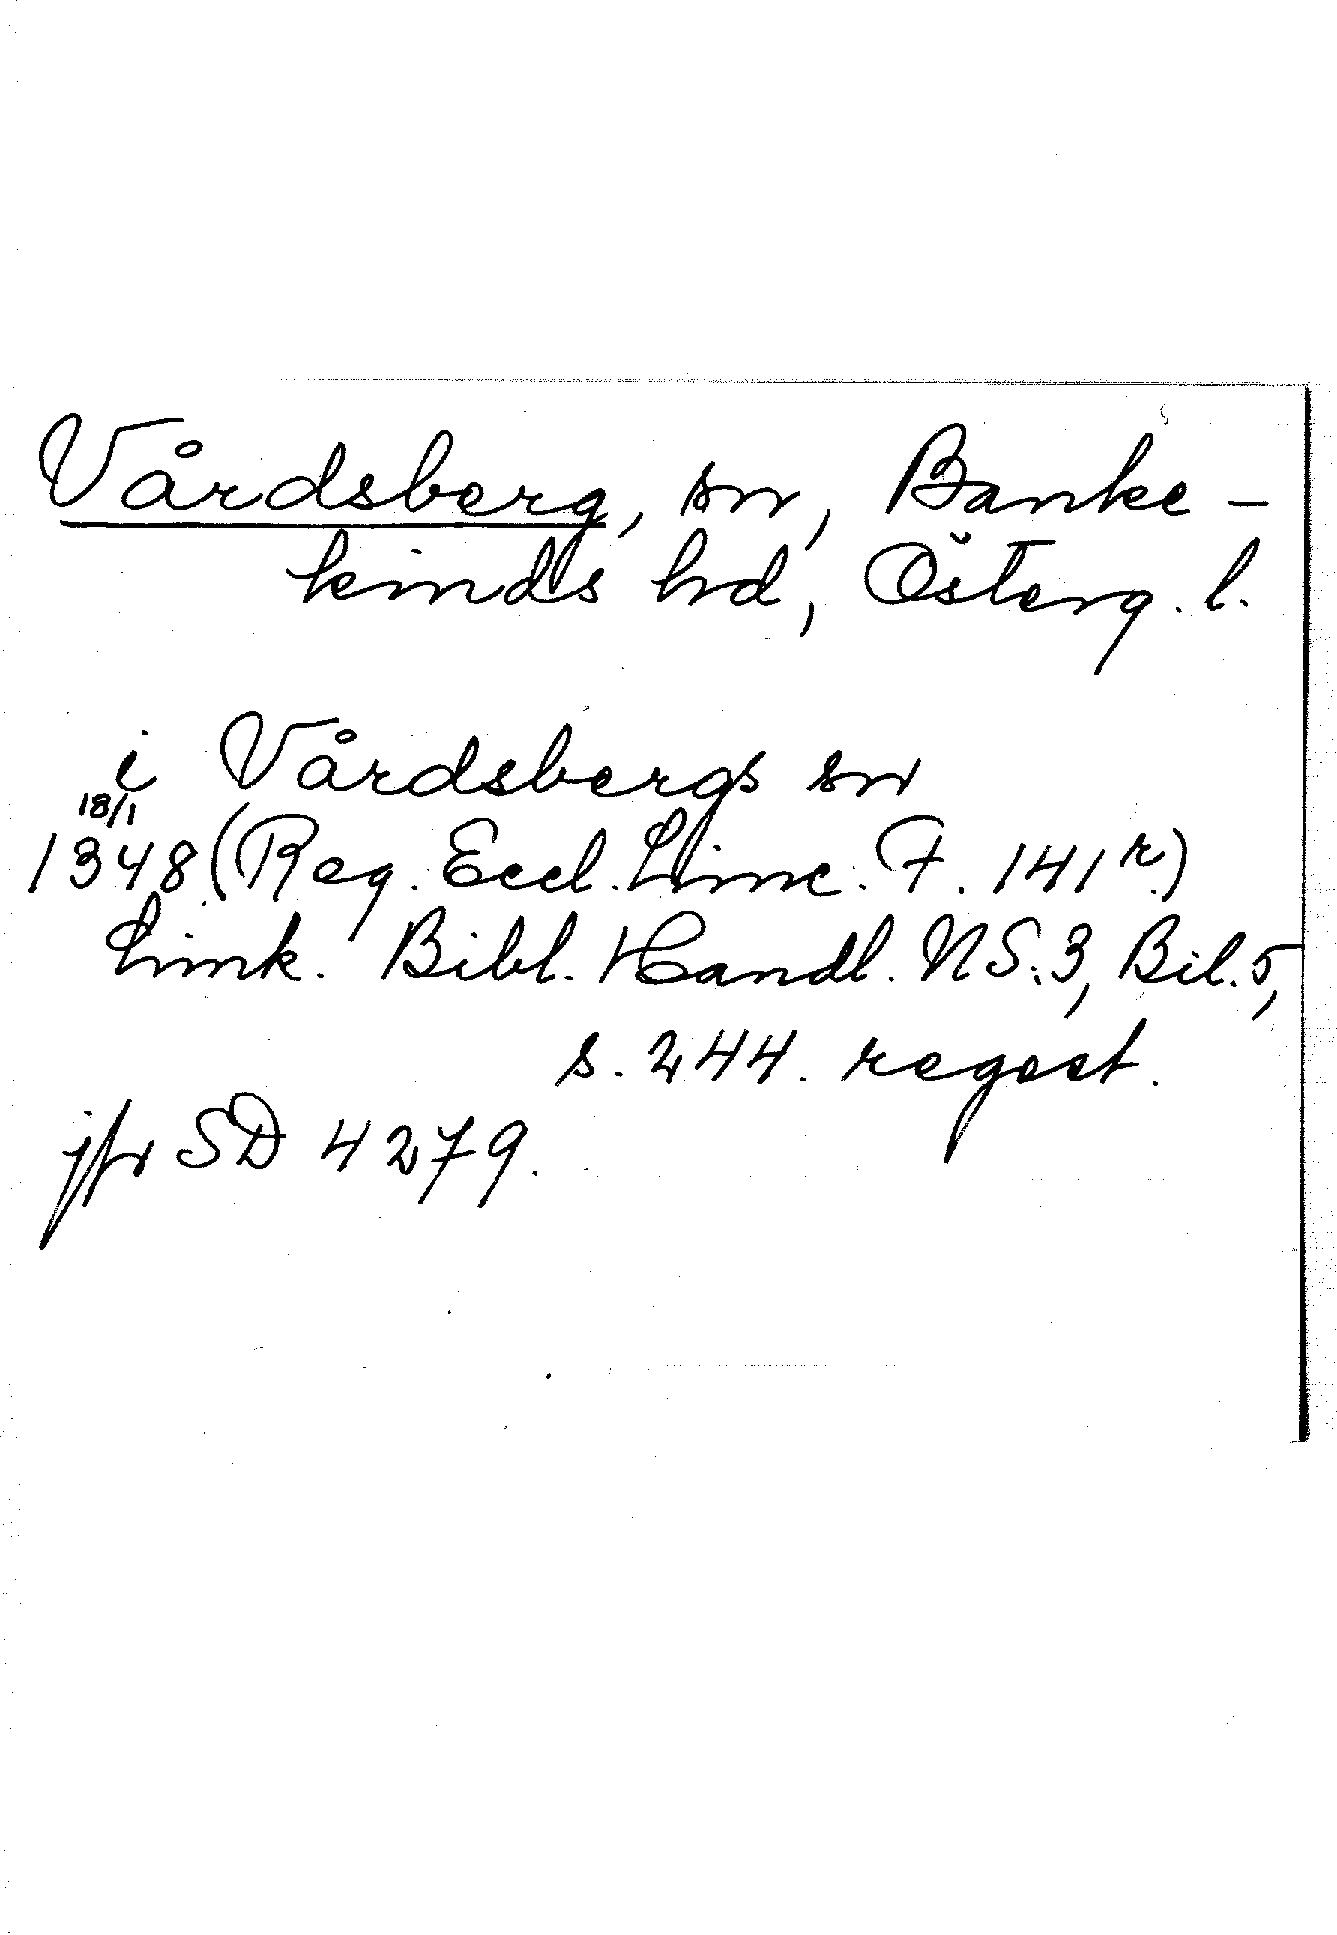 Vårdsberg, sn, Banke-
kinds hd, Österg. l.
i Vårdsbergs sn
18/1
1348 (Reg. Eccl. Linc. F. 141 r.)
Link. Bibl. Handl. NS:3, Bil. 5,
s. 244. regest.
jfr SD 4279.